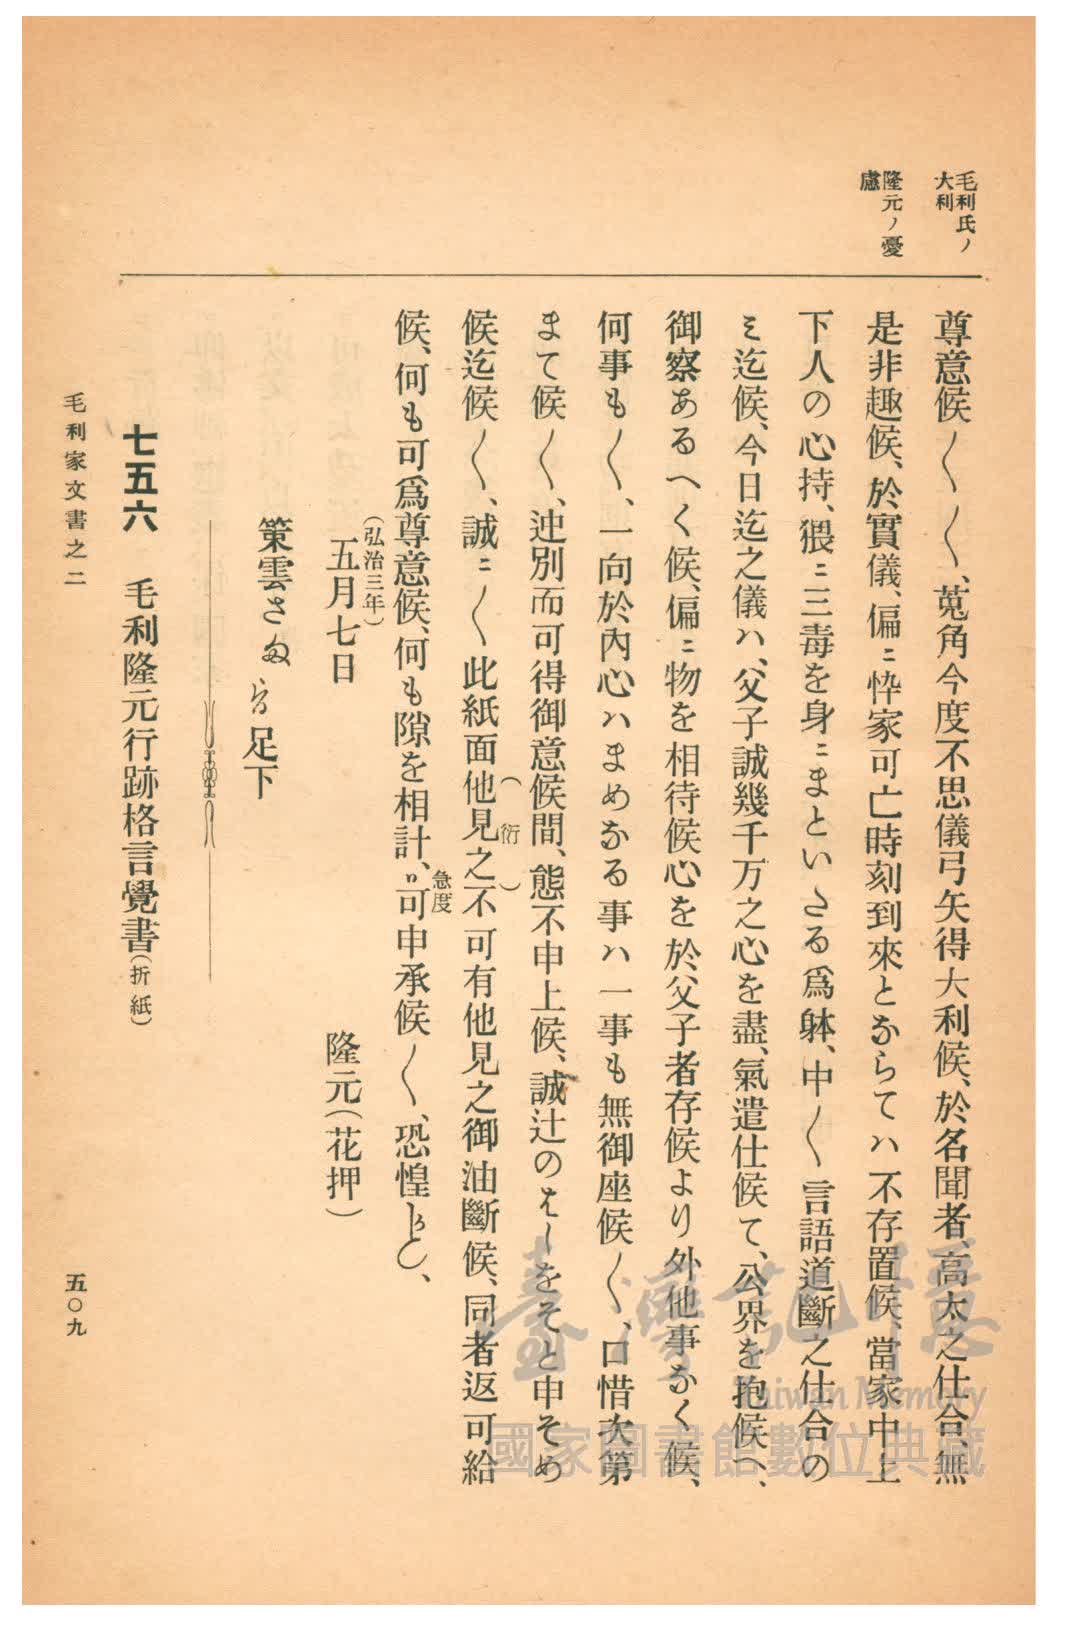 毛利氏ノ
大利
隆元ノ憂
慮
尊意候〳〵〳〵、菟角今度不思儀弓矢得大利候、於名聞者、高太之仕合、無
是非趣候、於實儀、偏ニ忰家可亡時刻到來とならてハ不存置候、當家中上
下人の心持、猥ニ三毒を身ニまといたる爲躰、中〳〵言語道斷之仕合の
ミ迄候、今日迄之儀ハ、父子誠幾千万之心を盡、氣遣仕候て、公界を抱候へ、
御察あるへく候、偏ニ物を相待候心を於父子者存候より外他事なく候、
何事も〳〵、一向於內心ハまめなる事ハ一事も無御座候〳〵、口惜次第
まて候〳〵、迚別而可得御意候間、態不申上候、誠辻のはしをそと申そめ
候迄候〳〵、誠ニ〳〵此紙面他見之不可有他見之御油斷候、同者返可給
(衍)
候、何も可爲尊意候、何も隙を相計、〃可申承候〳〵、恐惶かしく、
急度
(弘治三年)
五月七日
隆元(花押)
策雲さま
まいる足下
七五六 毛利隆元行跡格言覺書(折紙)
毛利家文書之二
五〇九
臺灣記憶
Taiwan Memory
國家圖書館數位典藏